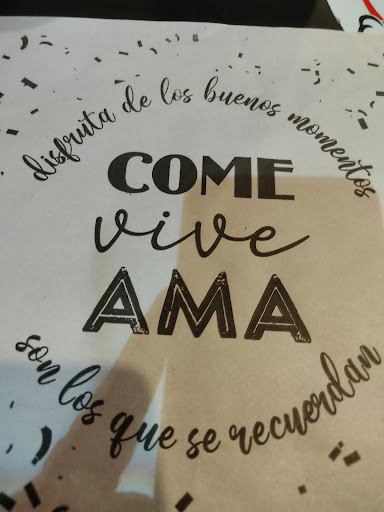 disfruta de los buenos momentos
COME
vive
AMA
son los que se recuerdan